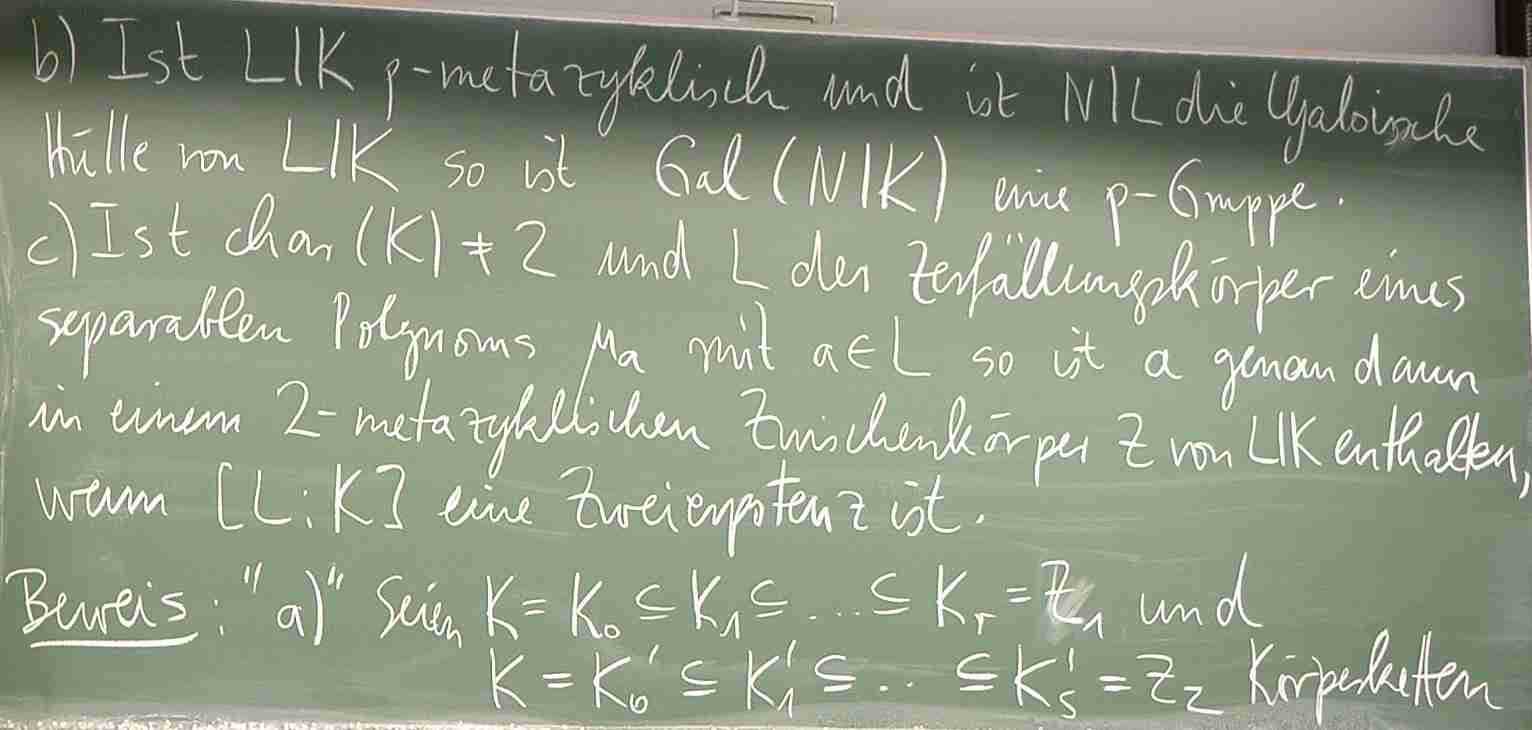 b) Ist L|K p-metazyklisch und ist N|L die Galoissche
Hülle von L|K so ist Gal(N|K) eine p-Gruppe.
c) Ist char(K) ≠ 2 und L der Zerfällungskörper eines
separablen Polynoms μa mit a∈L so ist a genau dann
in einem 2-metazyklischen Zwischenkörper Z von L|K enthalten,
wenn [L:K] eine Zweierpotenz ist.
Beweis: "a)" Seien K = K₀ ⊆ K₁ ⊆ ... ⊆ Kᵣ = Z₁ und
K = K₀' ⊆ K₁' ⊆ .. ⊆ Kₛ' = Z₂ Körperketten